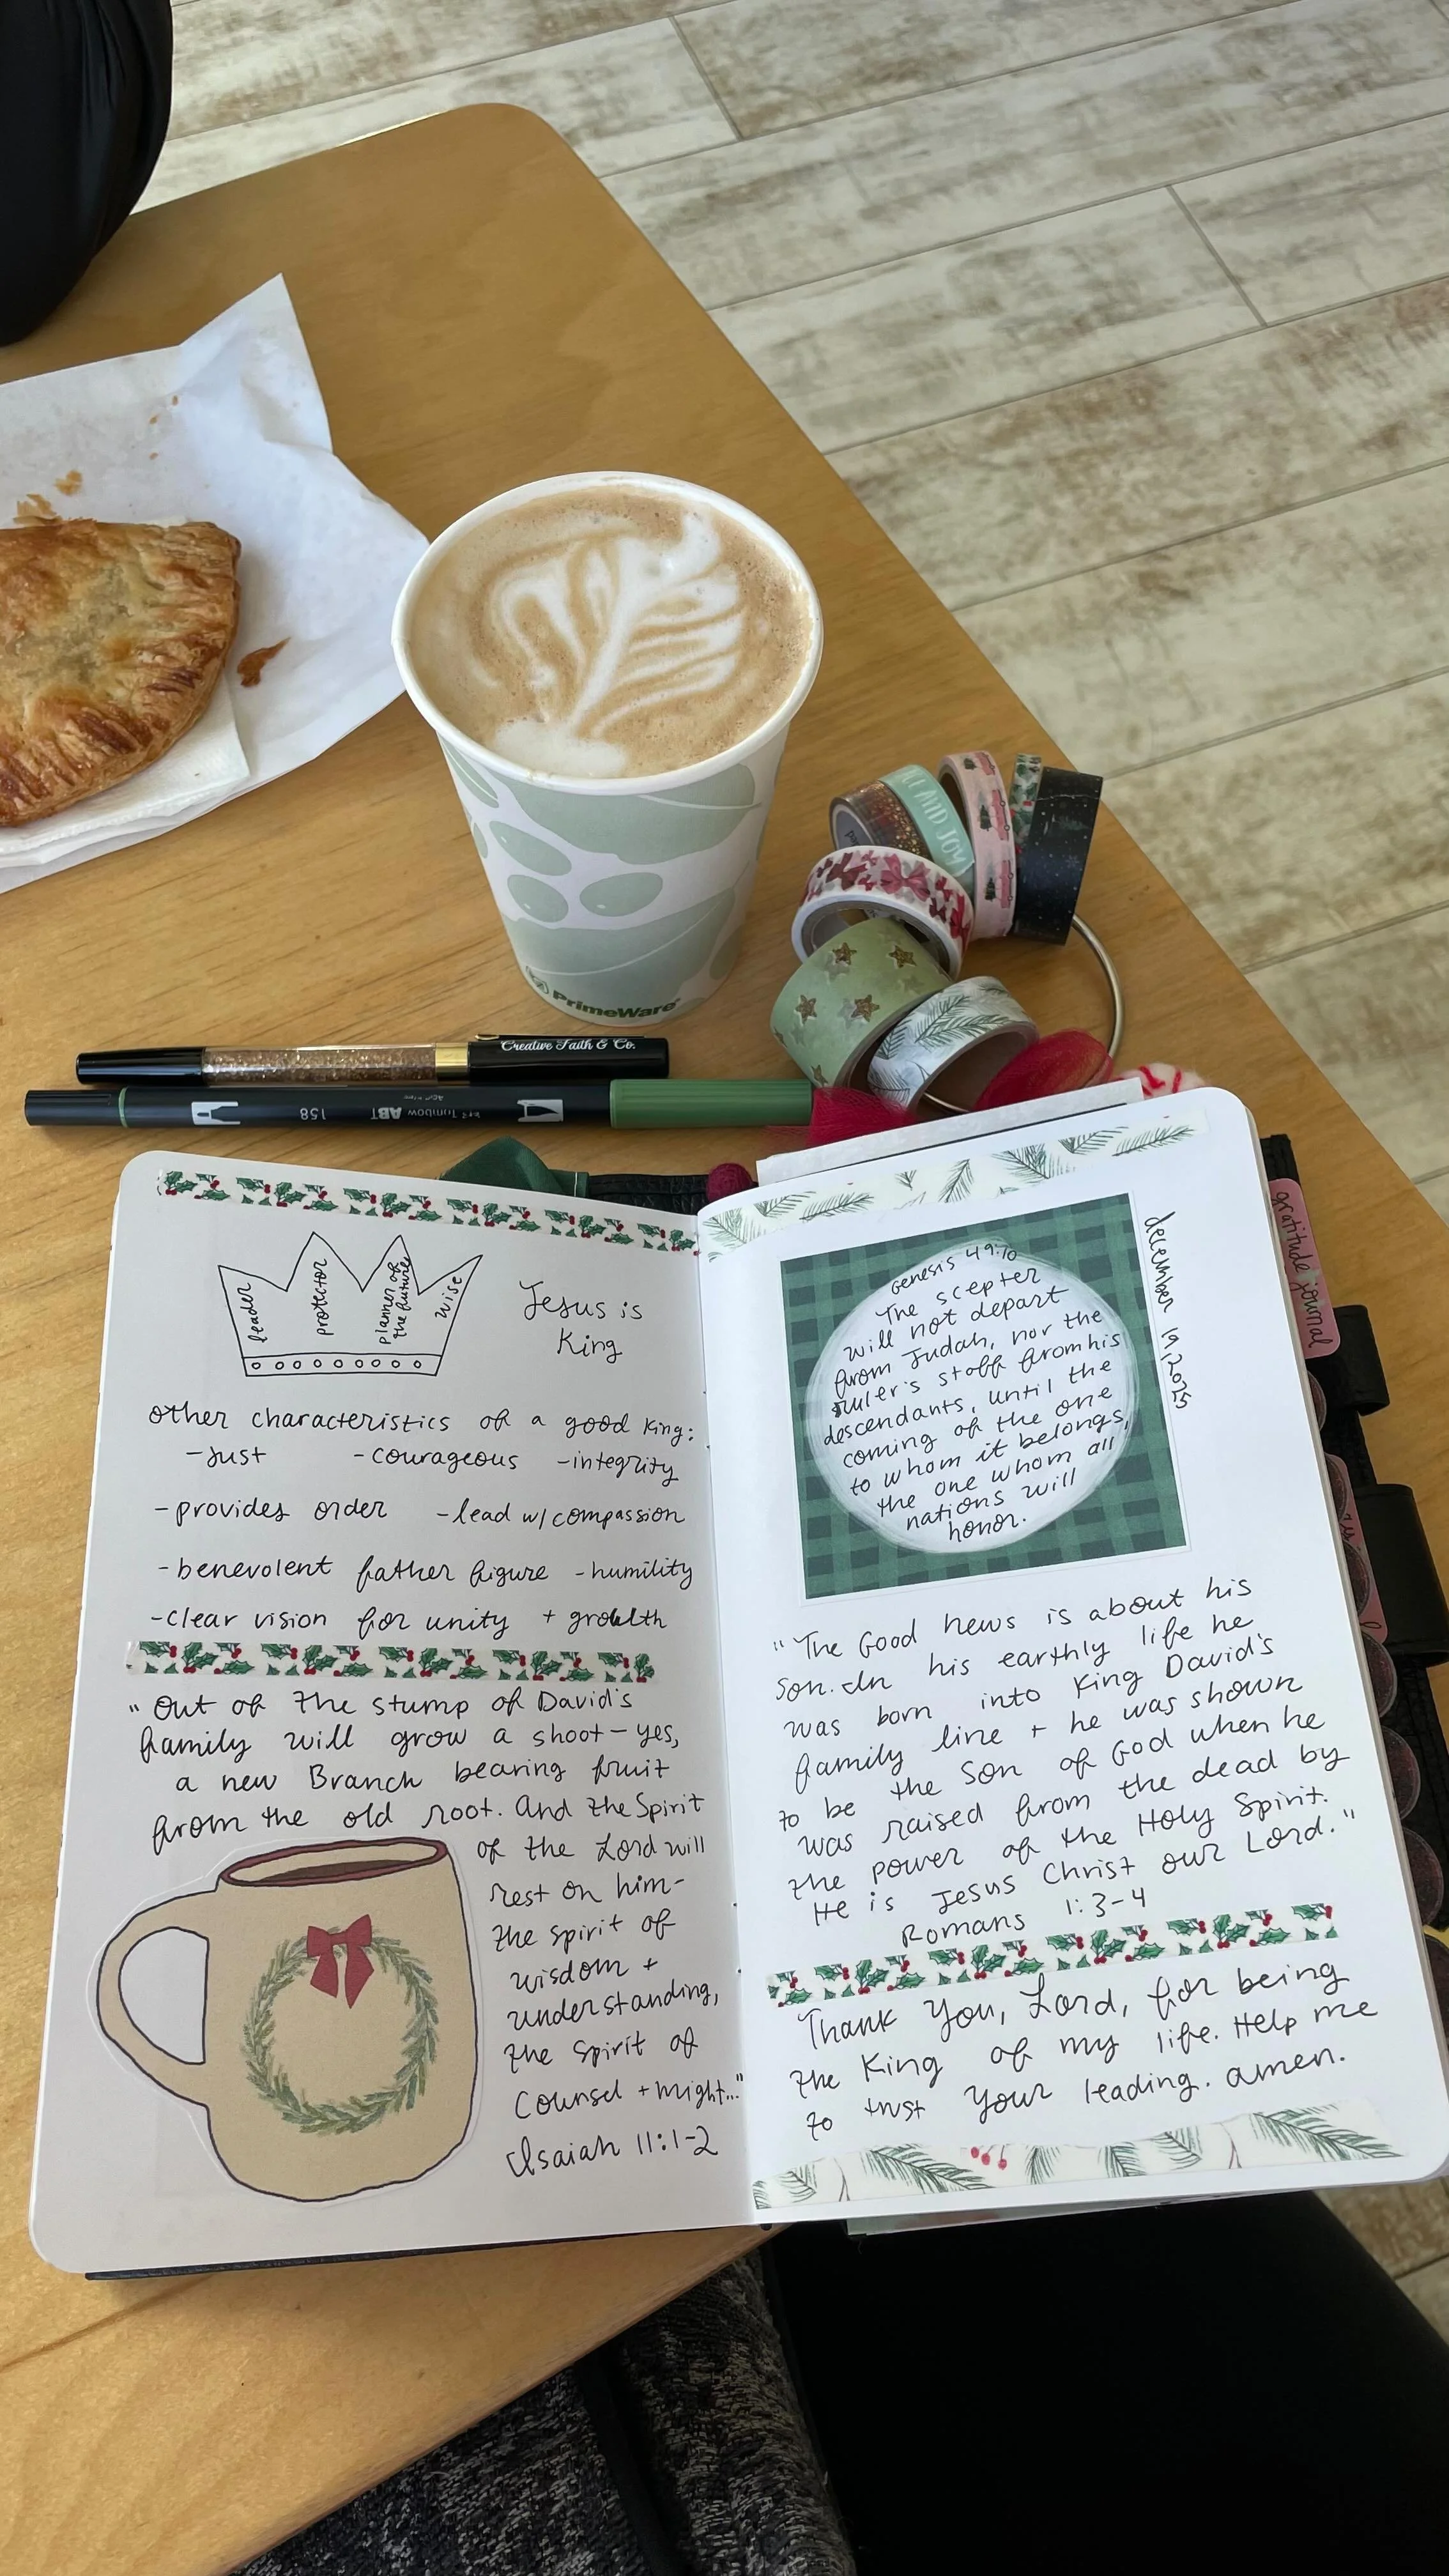 LE AND JOY
PrimeWare®
Creative Faith & Co.
Tombow ABT
158
leader
protector
planner of
the future
wise
Jesus is
King
other characteristics of a good king:
-just -courageous -integrity
-provides order -lead w/compassion
-benevolent father figure -humility
-clear vision for unity + growth
"Out of the stump of David's
family will grow a shoot-yes,
a new Branch bearing fruit
from the old root. And the Spirit
of the Lord will
rest on him-
the spirit of
wisdom +
understanding,
the Spirit of
Counsel + might..."
Isaiah 11:1-2
december 19, 2025
Genesis 49:10
The scepter
will not depart
from Judah, nor the
ruler's staff from his
descendants, until the
coming of the one
to whom it belongs,
the one whom all
nations will
honor.
"The Good news is about his
Son. In his earthly life he
was born into King David's
family line + he was shown
to be the Son of God when he
was raised from the dead by
the power of the Holy Spirit.
He is Jesus Christ our Lord."
Romans 1:3-4
Thank You, Lord, for being
the King of my life. Help me
to trust your leading. amen.
gratitude journal